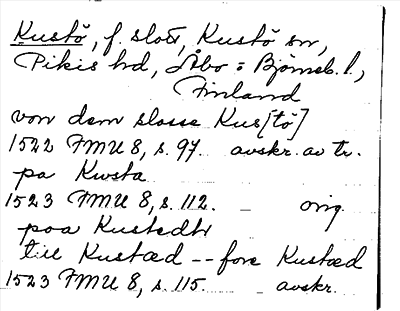 Kustö, f. slott, Kustö sn,
Pikis hd, Åbo o Björneb. l.,
Finland
von dem slosse Kus[tö]
1522 FMU 8, s. 97. avskr. av tr.
pa Kwsta
1523 FMU 8, s. 112. _ orig.
poa Kustedtr
till Kustæd -- fore Kustæd
1523 FMU 8, s. 115. _ avskr.